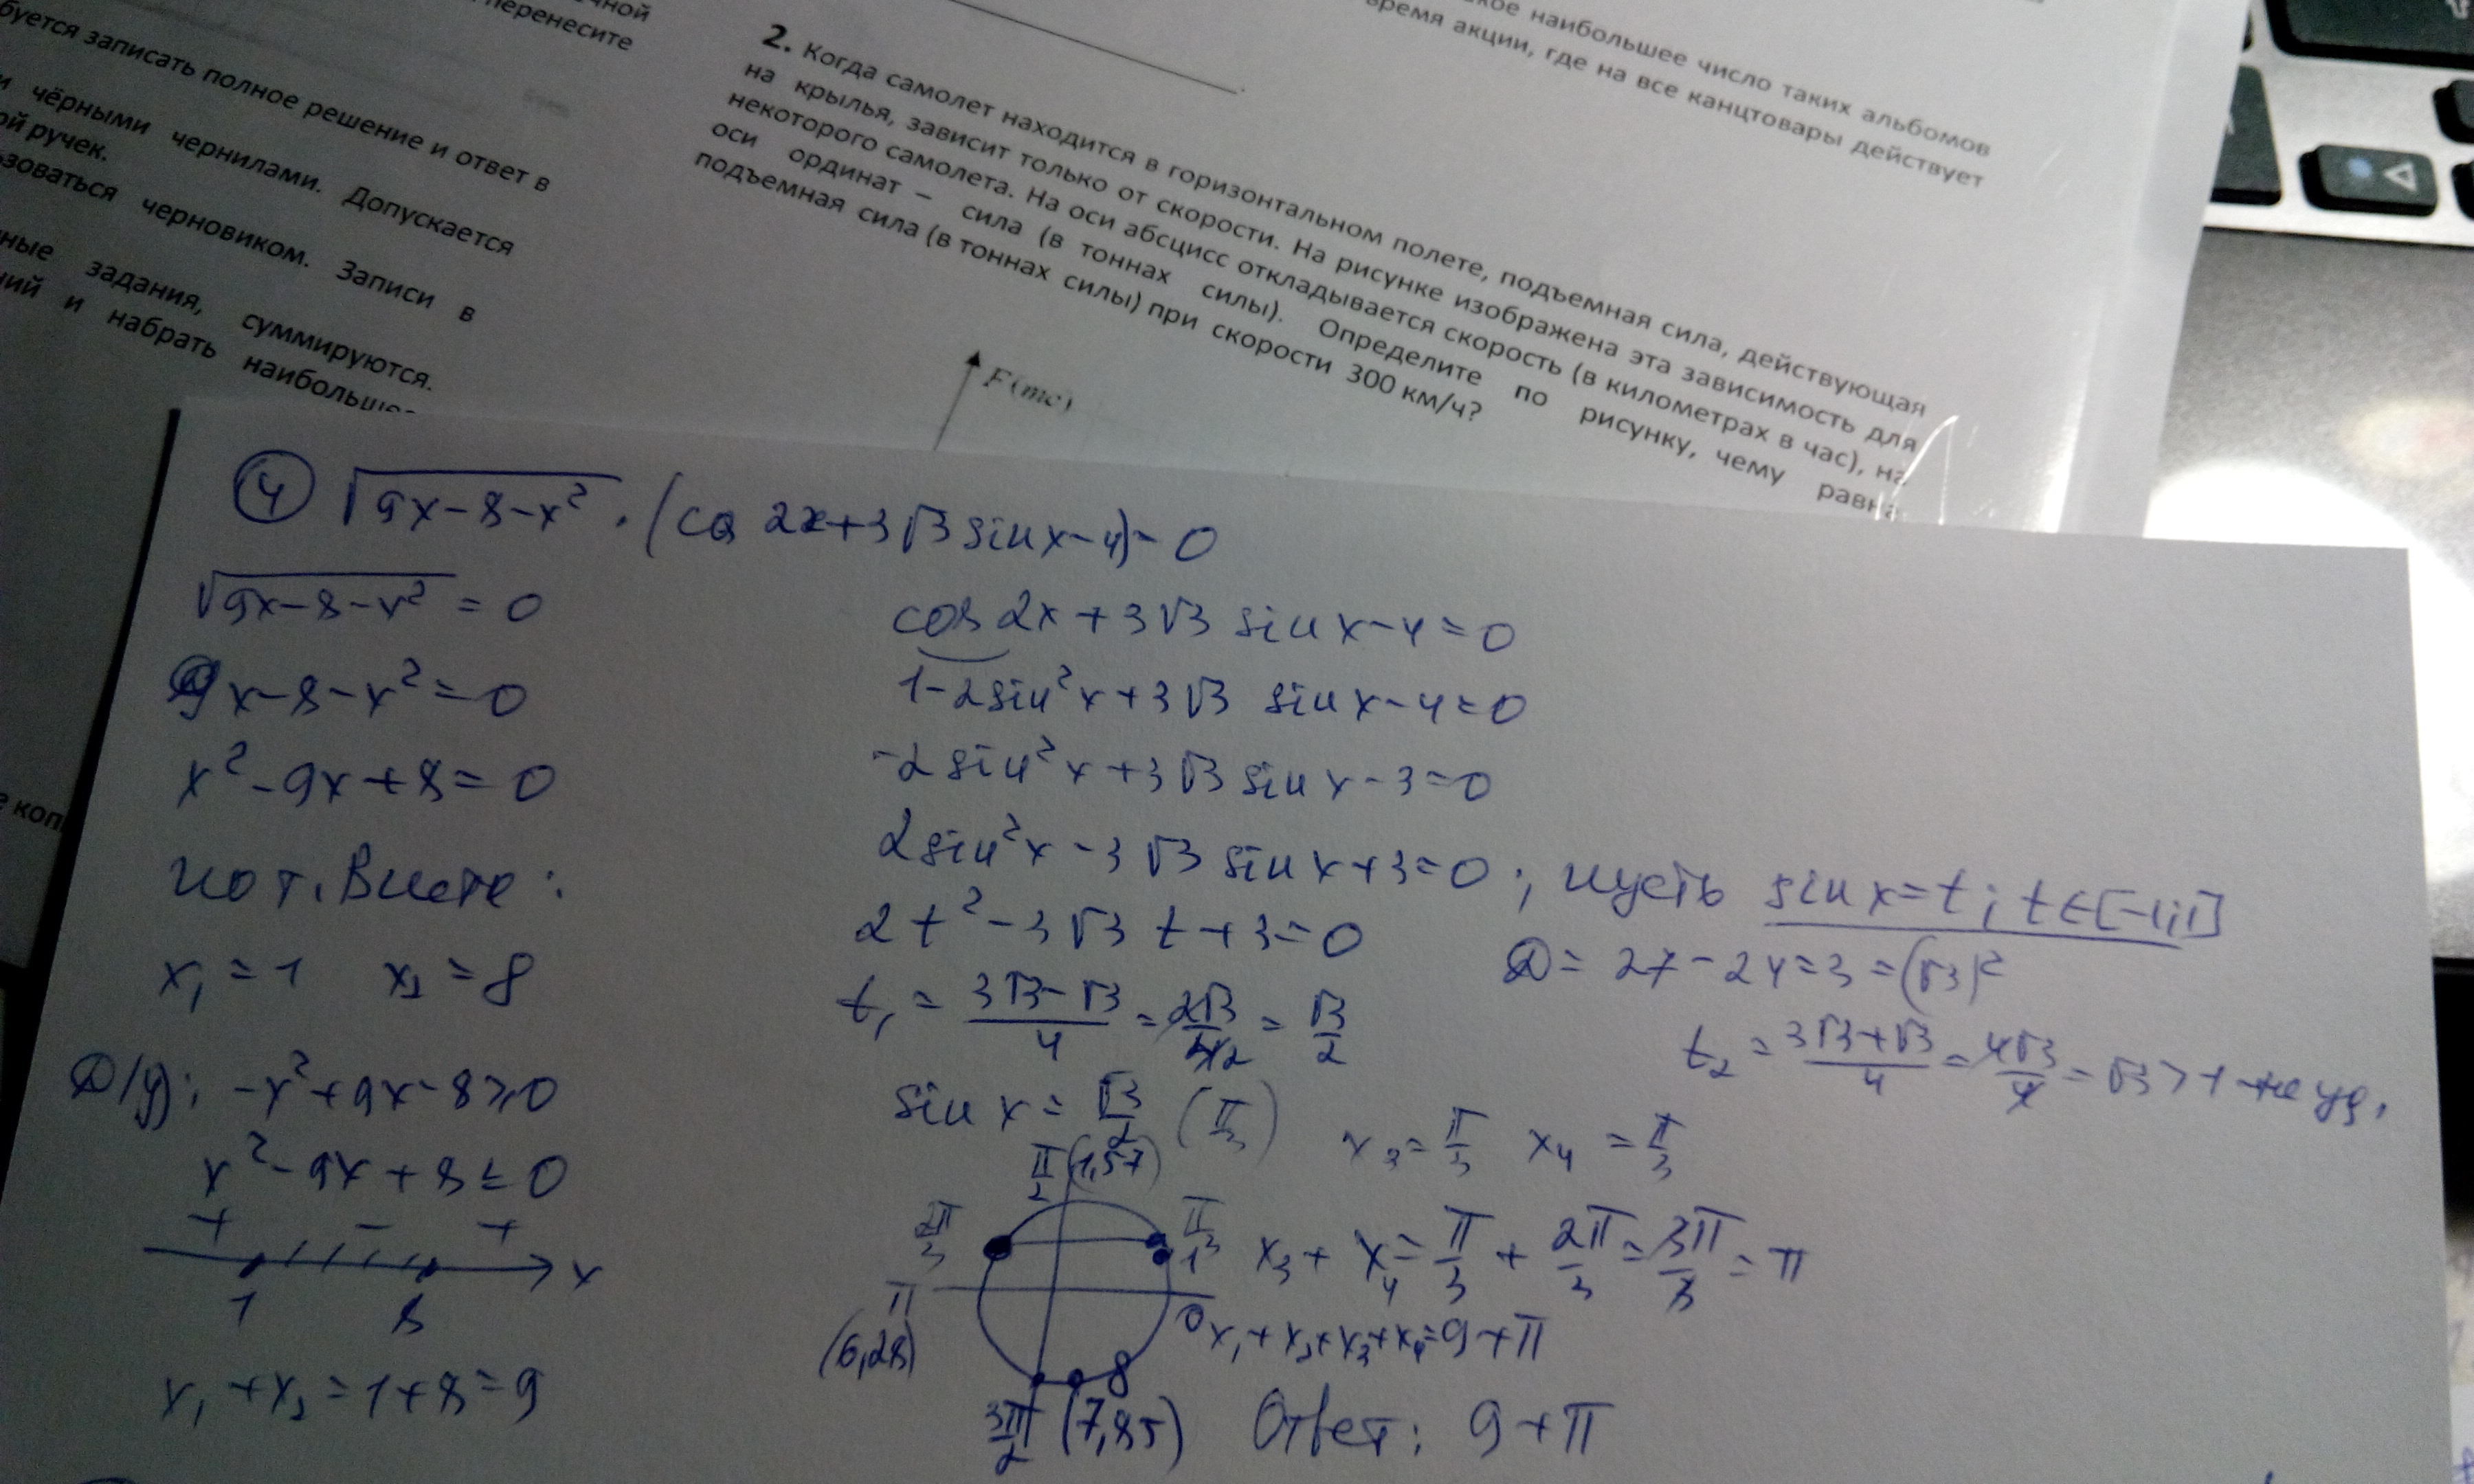 буется записать полное решение и ответ в
чёрными чернилами. Допускается
ой ручек.
зоваться черновиком. Записи в
ные задания, суммируются.
ний и набрать наибольшее
перенесите
2. Когда самолет находится в горизонтальном полете, подъемная сила, действующая
на крылья, зависит только от скорости. На рисунке изображена эта зависимость для
некоторого самолета. На оси абсцисс откладывается скорость (в километрах в час), на
оси ординат – сила (в тоннах силы). Определите по рисунку, чему равна
подъемная сила (в тоннах силы) при скорости 300 км/ч?
F(тс)
кое наибольшее число таких альбомов
время акции, где на все канцтовары действует
④ √(9x-8-x²) · (cos 2x+3√3 sin x-4)=0
√(9x-8-x²) = 0
9x-8-x²=0
x²-9x+8=0
по т. Виета:
x₁=1 x₂=8
Д/у: -x²+9x-8≥0
x²-9x+8≤0
+ - +
1 8 x
x₁+x₂=1+8=9
cos 2x+3√3 sin x-4=0
1-2sin²x+3√3 sin x-4=0
-2sin²x+3√3 sin x-3=0
2sin²x-3√3 sin x+3=0; пусть sin x=t; t∈[-1;1]
2t²-3√3 t+3=0
D=27-24=3=(√3)²
t₁ = (3√3-√3)/4 = 2√3/4 = √3/2
t₂ = (3√3+√3)/4 = 4√3/4 = √3>1 - не уд.
sin x = √3/2 (π/3) x₃=π/3 x₄=π/3
π/2 (1,57)
2π/3 π/3
1
π 0
(6,28)
8
3π/2 (7,85)
x₃+x₄=π/3+2π/3=3π/3=π
x₁+x₂+x₃+x₄=9+π
Ответ: 9+π